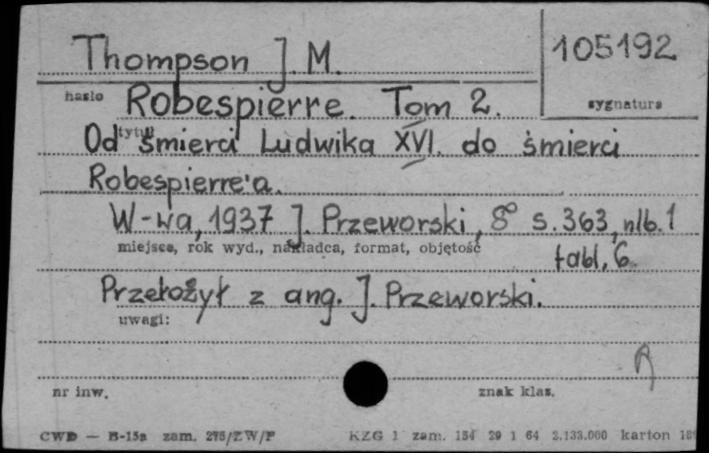 Thompson J. M.
105192
hasło
sygnatura
Robespierre. Tom 2.
tytuł
Od śmierci Ludwika XVI. do śmierci
Robespierre'a.
W-wa, 1937 J. Przeworski, 8° s. 363, nlb. 1
miejsce, rok wyd., nakładca, format, objętość
tabl. 6.
Przełożył z ang. J. Przeworski.
uwagi:
R
nr inw.
znak klas.
CWD — B-15a zam. 276/ZW/F
KZG 1 zam. 154 29 1 64 2.133.000 karton